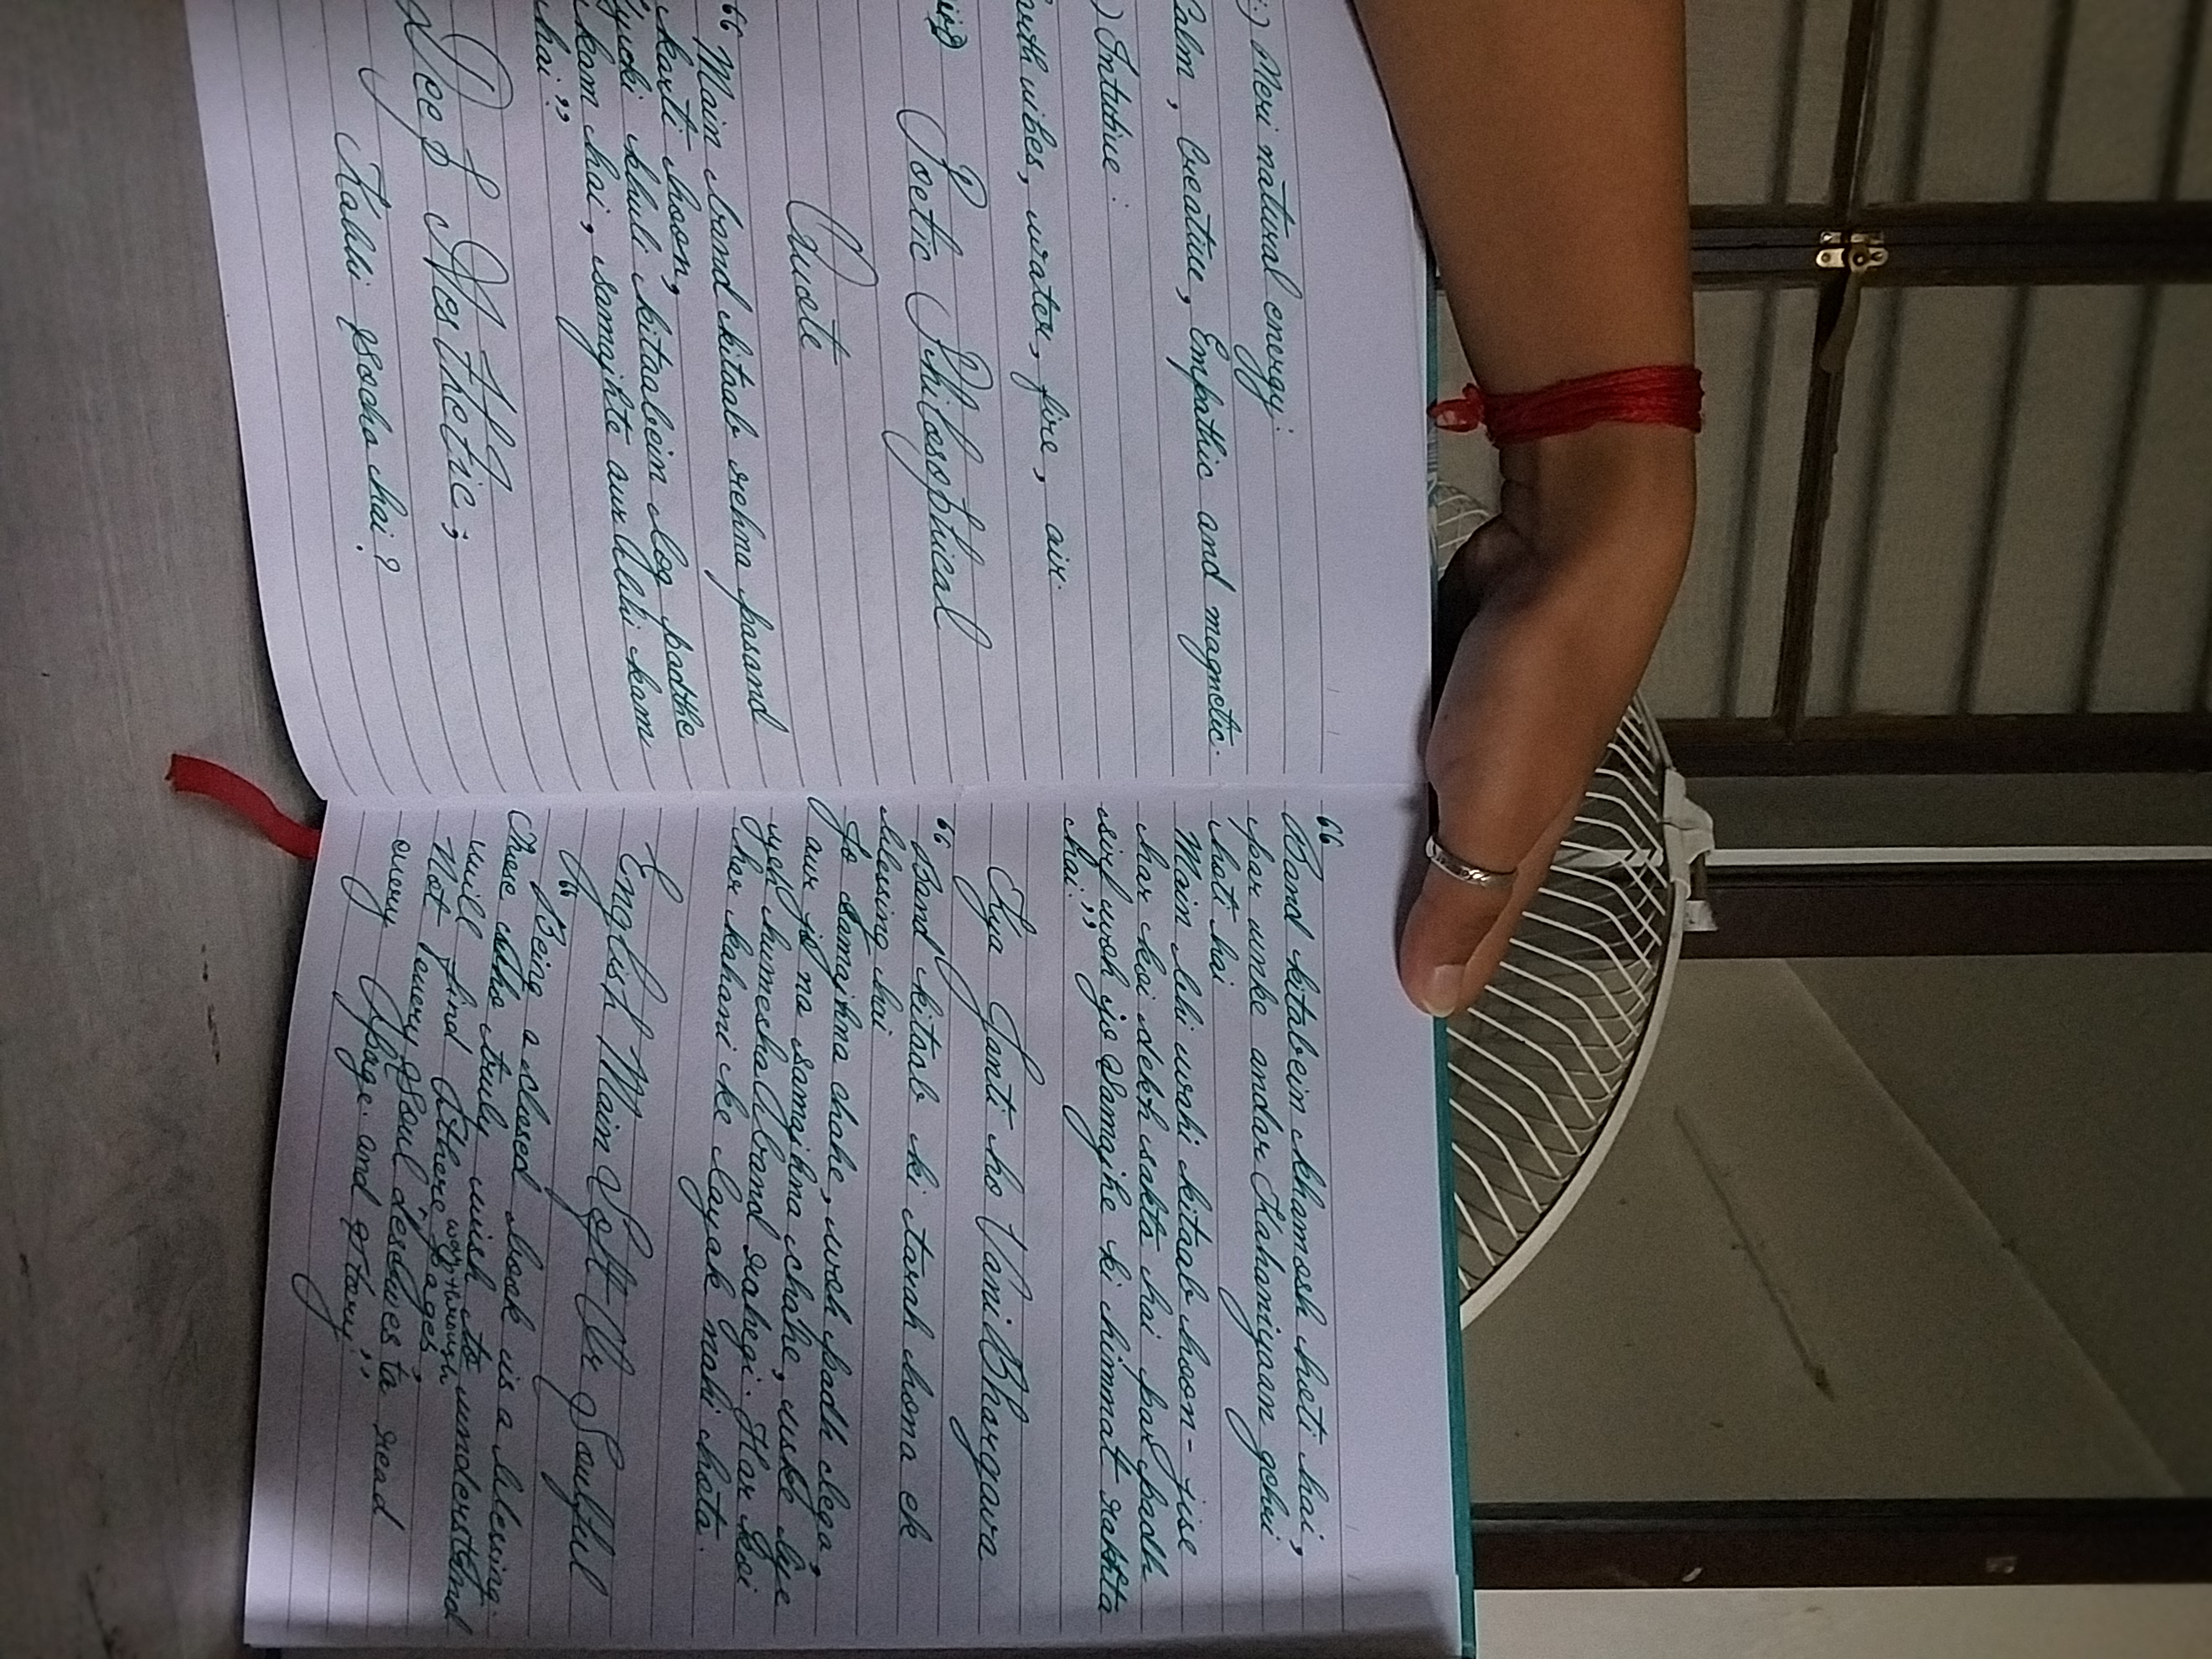 :) Meri natural energy:
Calm, Creative, Empathic and magnetic.
) Intutive:
earth vibes, water, fire, air.
Poetic Philosophical
Quote
"Main band kitaab rehna pasand
karti hoon,
kyuki khuli kitaabein log padthe
kam hai, samajhte aur bhi kam
hai."
Deep Aesthetic;
Kabhi socha hai?
"Band kitabein khamosh hoti hai,
par unke andar Kahaniyaan gehri
hoti hai
Main bhi wahi kitaab hoon - jise
har koi dekh sakta hai par padh
sirf woh jo Samajhe ki himmat rakhta
hai."
Kya Janti ho Vani Bhargava
"Band kitaab ki tarah hona ek
blessing hai
Jo Samajhna chahe, woh padh lega,
aur jo na samajhna chahe, uske liye
yeh humesha band rahegi. Har koi
har kahani ke layak nahi hota.
English Main Soft Ur Soulful
"Being a closed book is a blessing.
These who truly wish to understand
will find there way through pages,
Not every soul deserves to read
every page and story"